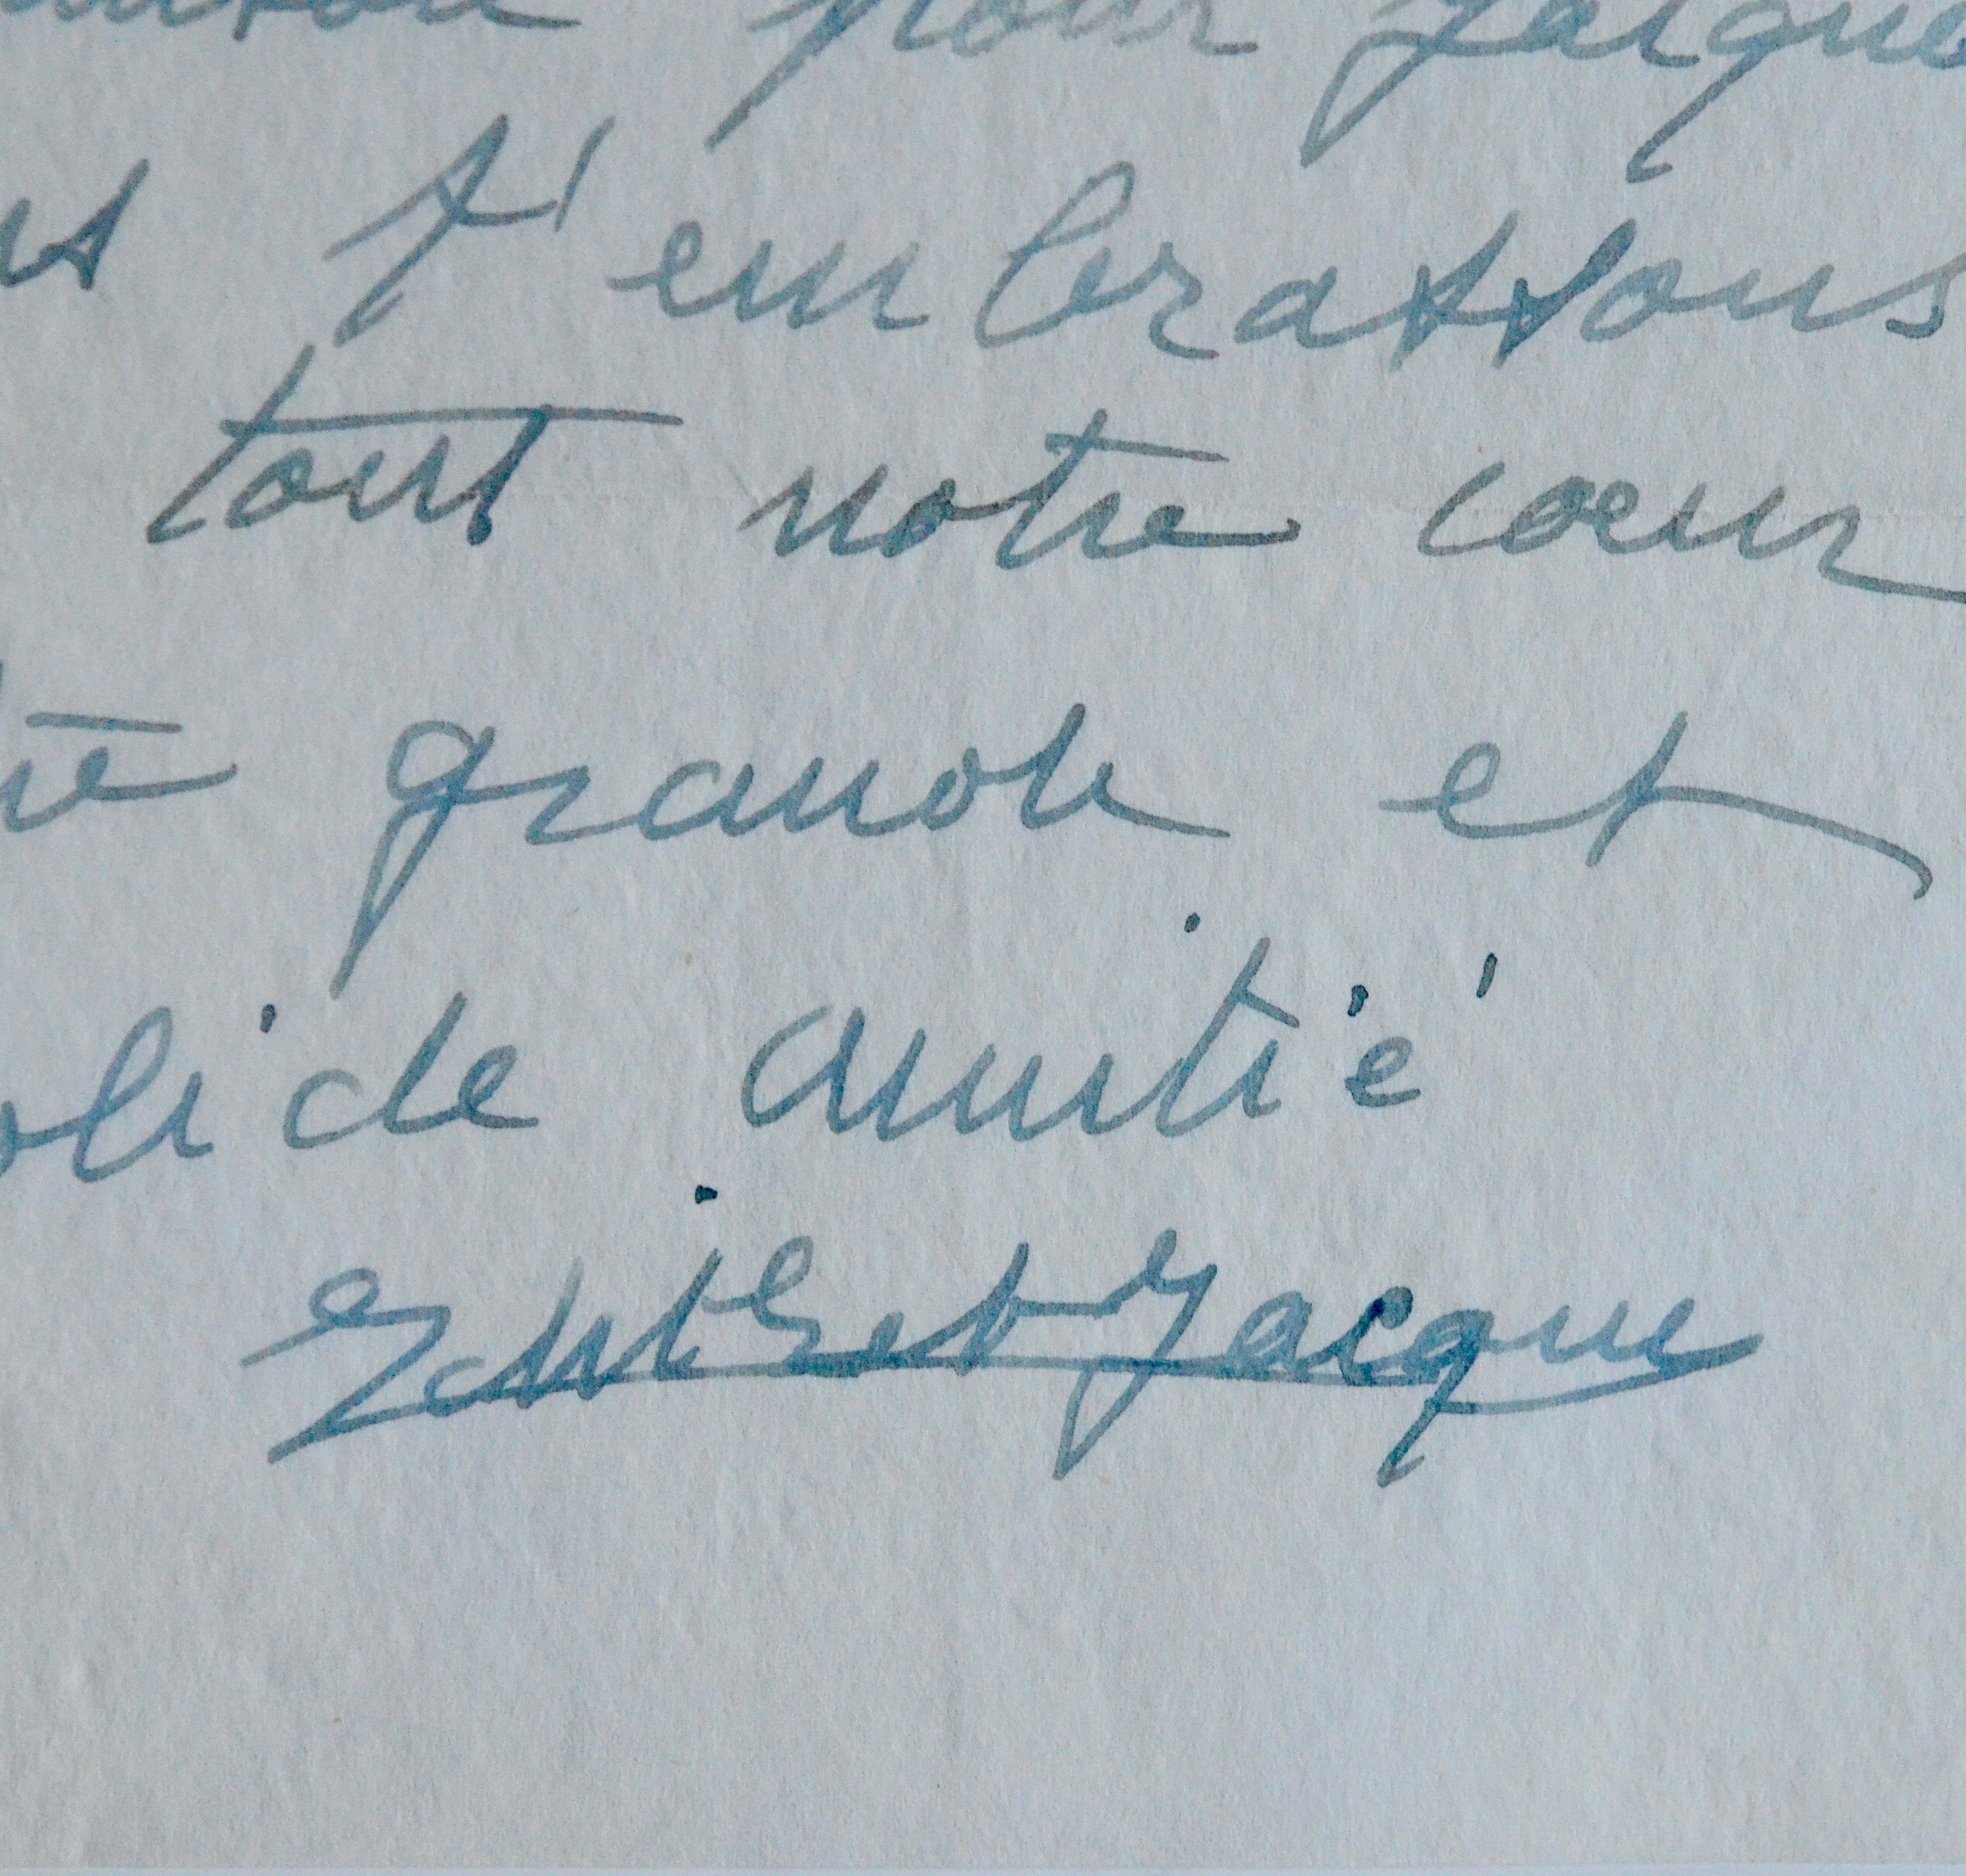 pour Jacques
t'embrassons
tout notre cœur
grande et
solide amitié
et Jacques